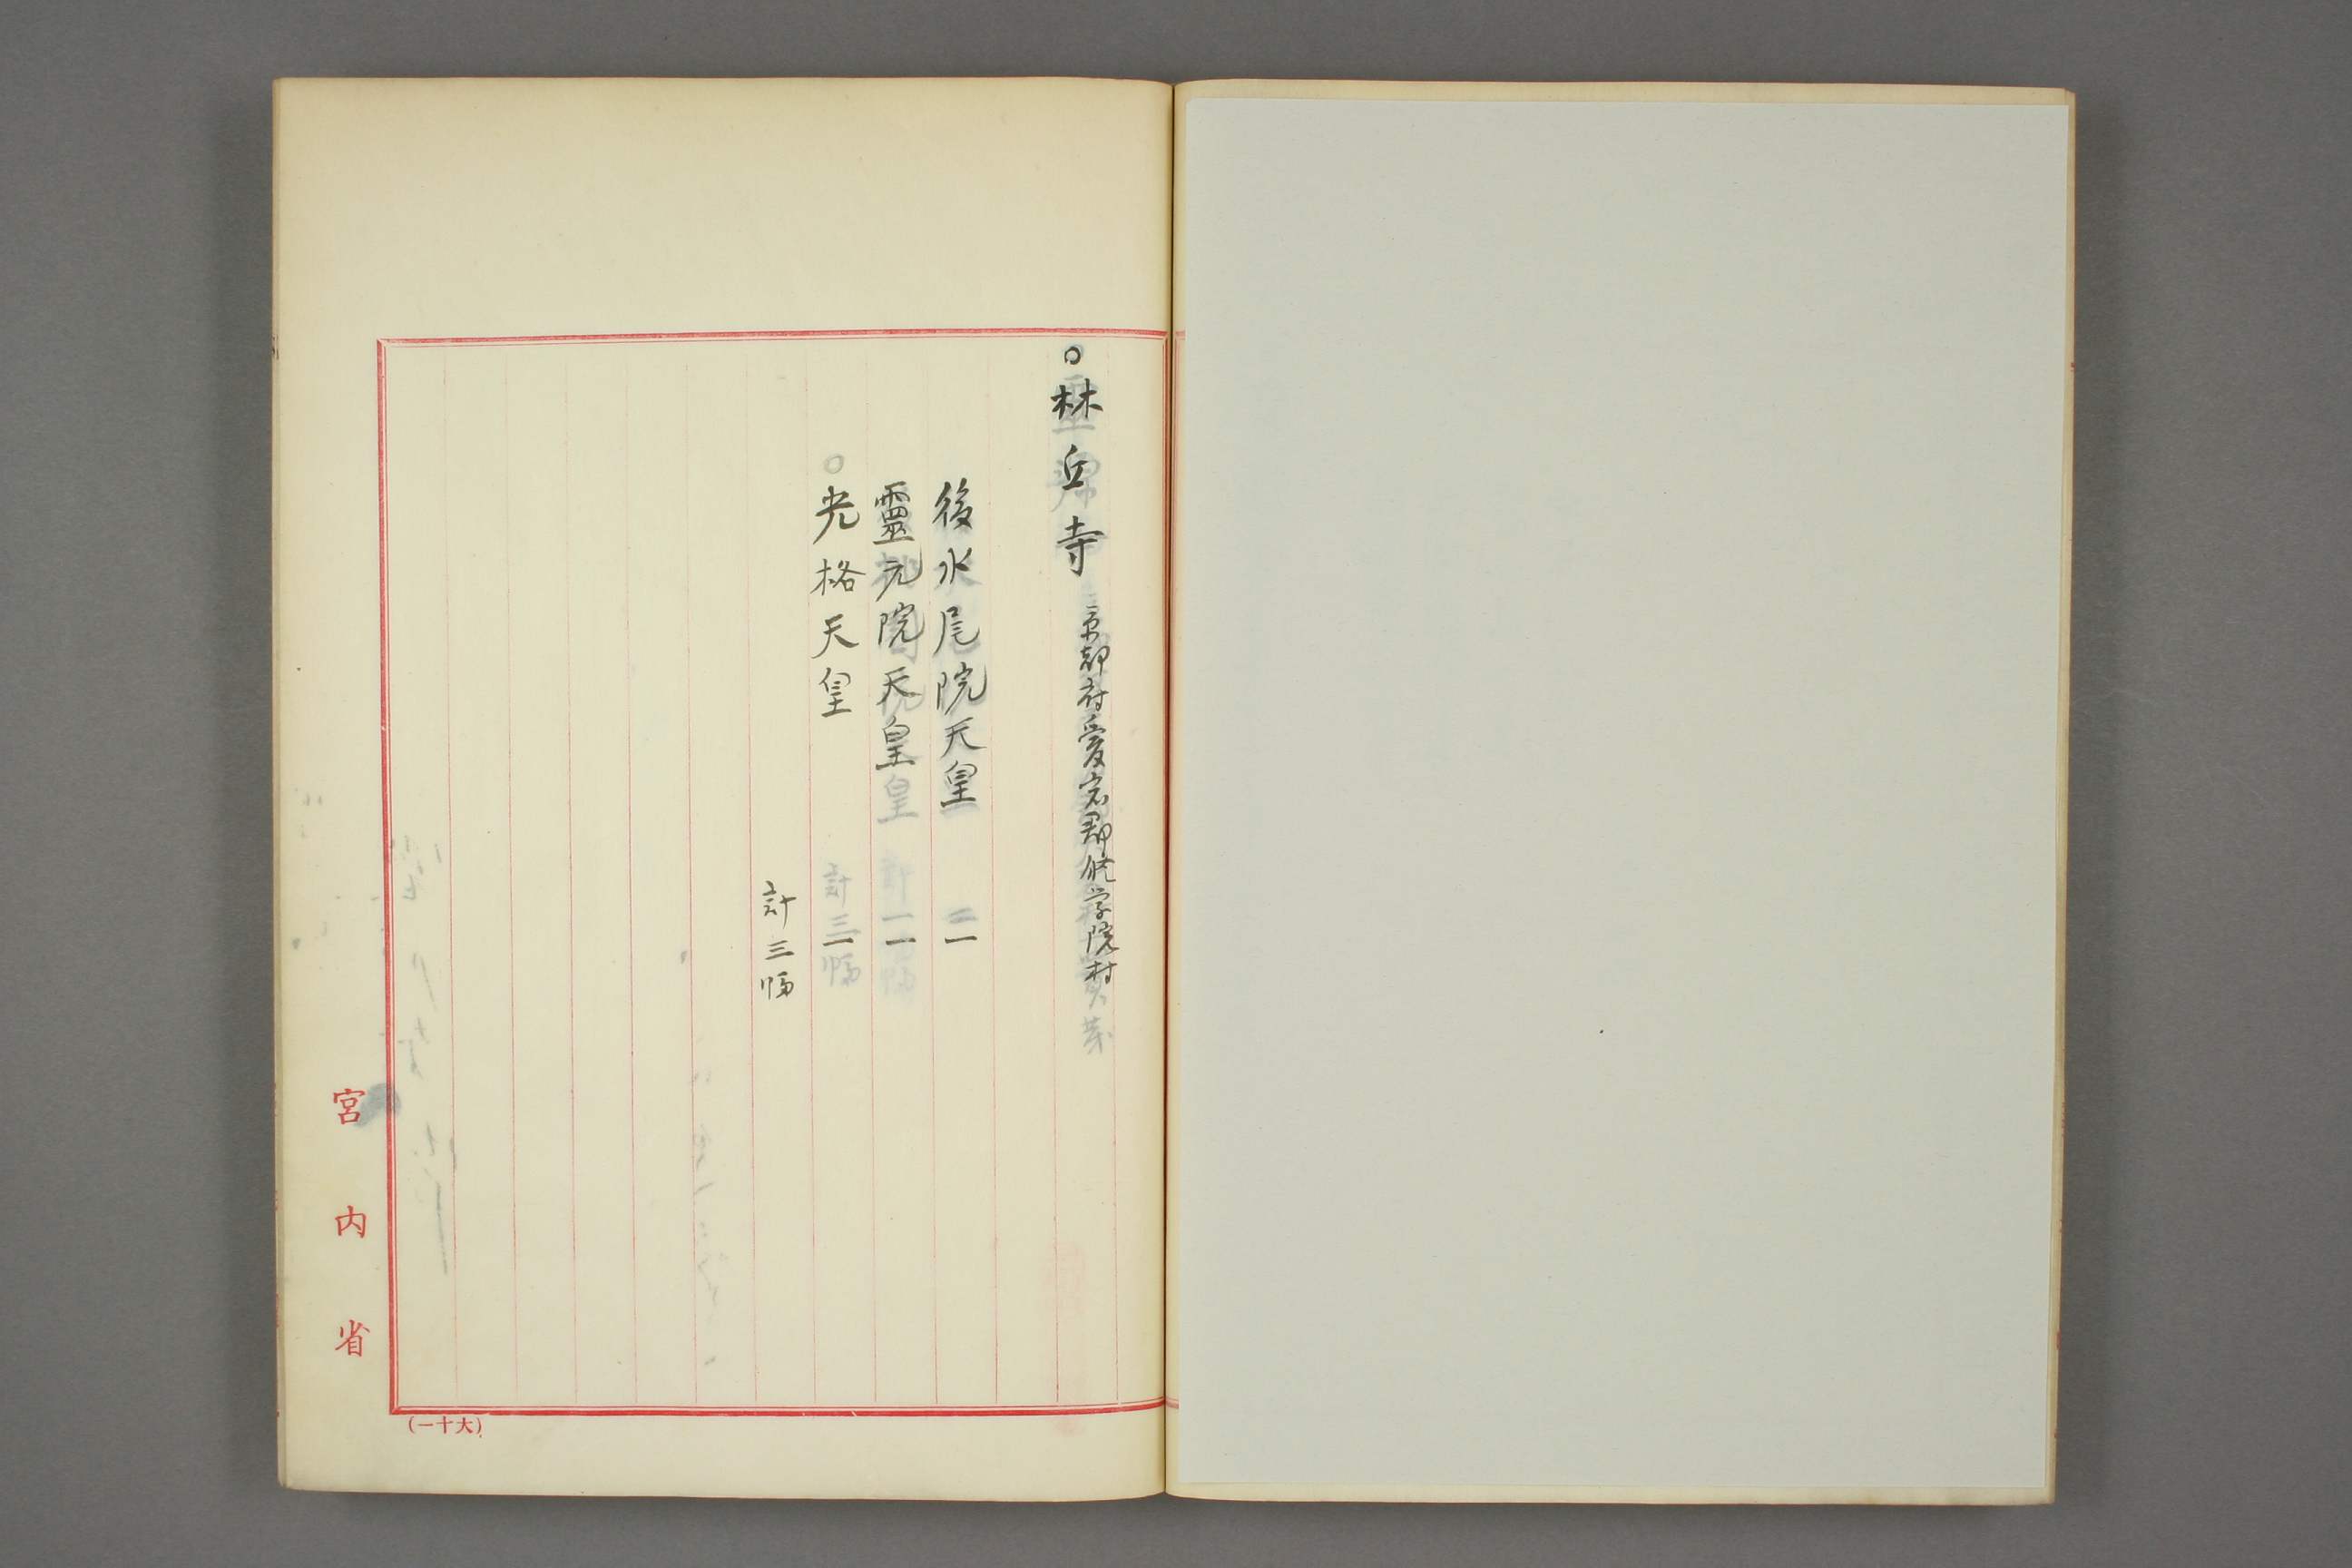 ○林丘寺 京都府愛宕郡修学院村
後水尾院天皇 一
靈元院天皇 一
光格天皇 一
計三幅
宮内省
(大十一)